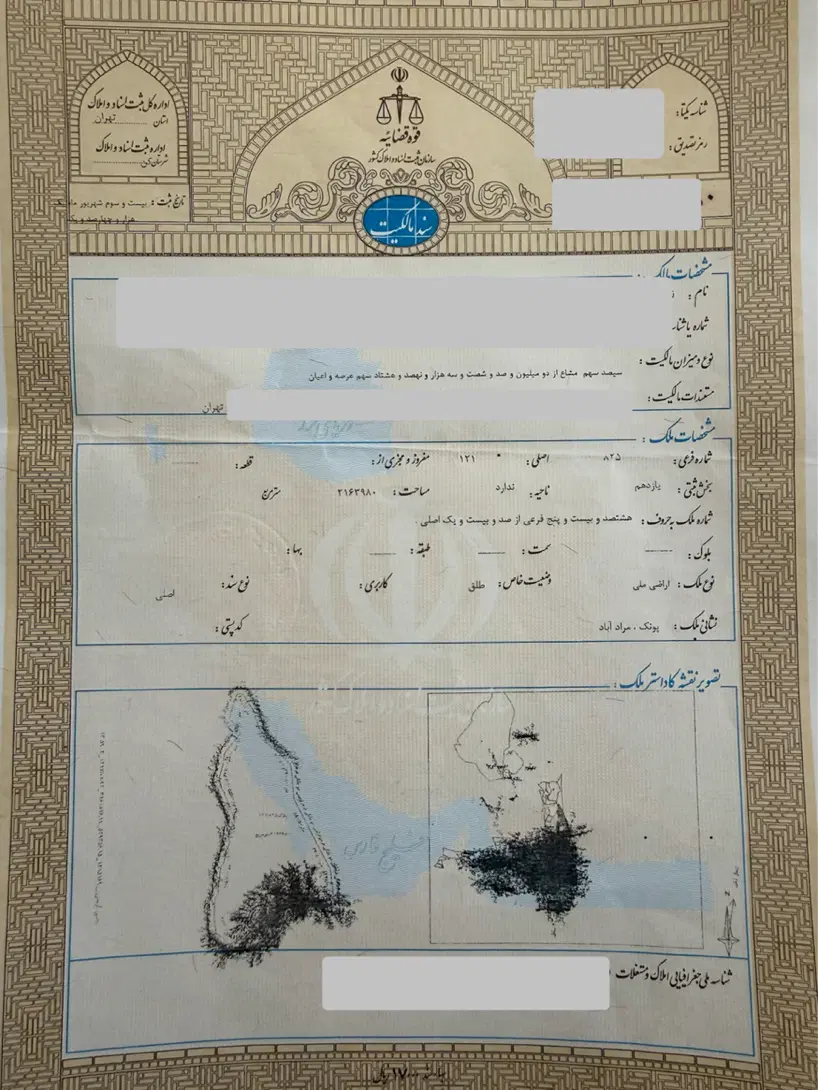 اداره کل ثبت اسناد و املاک
استان تهران
اداره ثبت اسناد و املاک
شهرستان کن
قوه قضائیه
سازمان ثبت اسناد و املاک کشور
شناسه یکتا:
رمز تصدیق:
تاریخ ثبت: بیست و سوم شهریور ماه یک
هزار و چهارصد و یک
سند مالکیت
مشخصات مالک:
نام:
شماره یا شناسه
نوع و میزان مالکیت: سیصد سهم مشاع از دو میلیون و صد و شصت و سه هزار و نهصد و هشتاد سهم عرصه و اعیان
مستندات مالکیت: تهران
مشخصات ملک:
شماره فرعی: ۸۲۵ اصلی: ۱۲۱ مفروز و مجزی از: قطعه:
بخش ثبتی: یازدهم ناحیه: ندارد مساحت: ۲۱۶۳۹۸۰ مترمربع
شماره ملک به حروف: هشتصد و بیست و پنج فرعی از صد و بیست و یک اصلی .
بلوک: سمت: طبقه: بها:
نوع ملک: اراضی ملی وضعیت خاص: طلق کاربری: نوع سند: اصلی
نشانی ملک: پونک ، مراد آباد کدپستی:
تصویر نقشه کاداستر ملک:
خلیج فارس
N
شناسه ملی جغرافیایی املاک و مستغلات